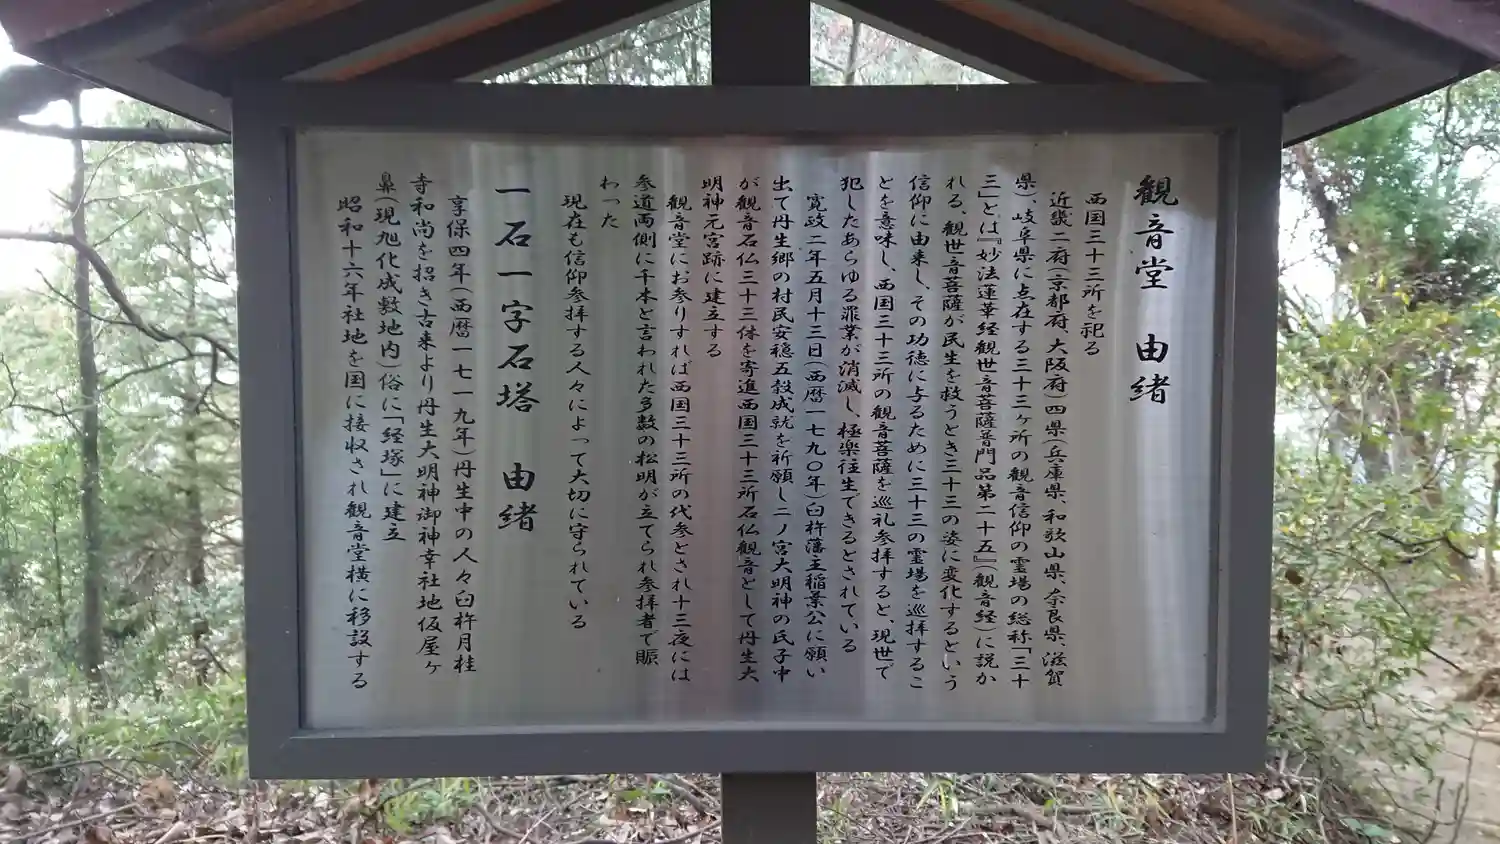 観音堂 由緒
西国三十三所を祀る
近畿二府(京都府、大阪府)四県(兵庫県、和歌山県、奈良県、滋賀
県)、岐阜県に点在する三十三ヶ所の観音信仰の霊場の総称「三十
三」とは『妙法蓮華経観世音菩薩普門品第二十五』(観音経)に説か
れる、観世音菩薩が民生を救うとき三十三の姿に変化するという
信仰に由来し、その功徳に与るために三十三の霊場を巡拝するこ
とを意味し、西国三十三所の観音菩薩を巡礼参拝すると、現世で
犯したあらゆる罪業が消滅し、極楽往生できるとされている
寛政二年五月十三日(西暦一七九〇年)臼杵藩主稲葉公に願い
出て丹生郷の村民安穏五穀成就を祈願し二ノ宮大明神の氏子中
が観音石仏三十三体を寄進西国三十三所石仏観音として丹生大
明神元宮跡に建立する
観音堂にお参りすれば西国三十三所の代参とされ十三夜には
参道両側に千本と言われた多数の松明が立てられ参拝者で賑
わった
現在も信仰参拝する人々によって大切に守られている
一石一字石塔 由緒
享保四年(西暦一七一九年)丹生中の人々臼杵月桂
寺和尚を招き古来より丹生大明神御神幸社地仮屋ヶ
鼻(現旭化成敷地内)俗に「経塚」に建立
昭和十六年社地を国に接収され観音堂横に移設する